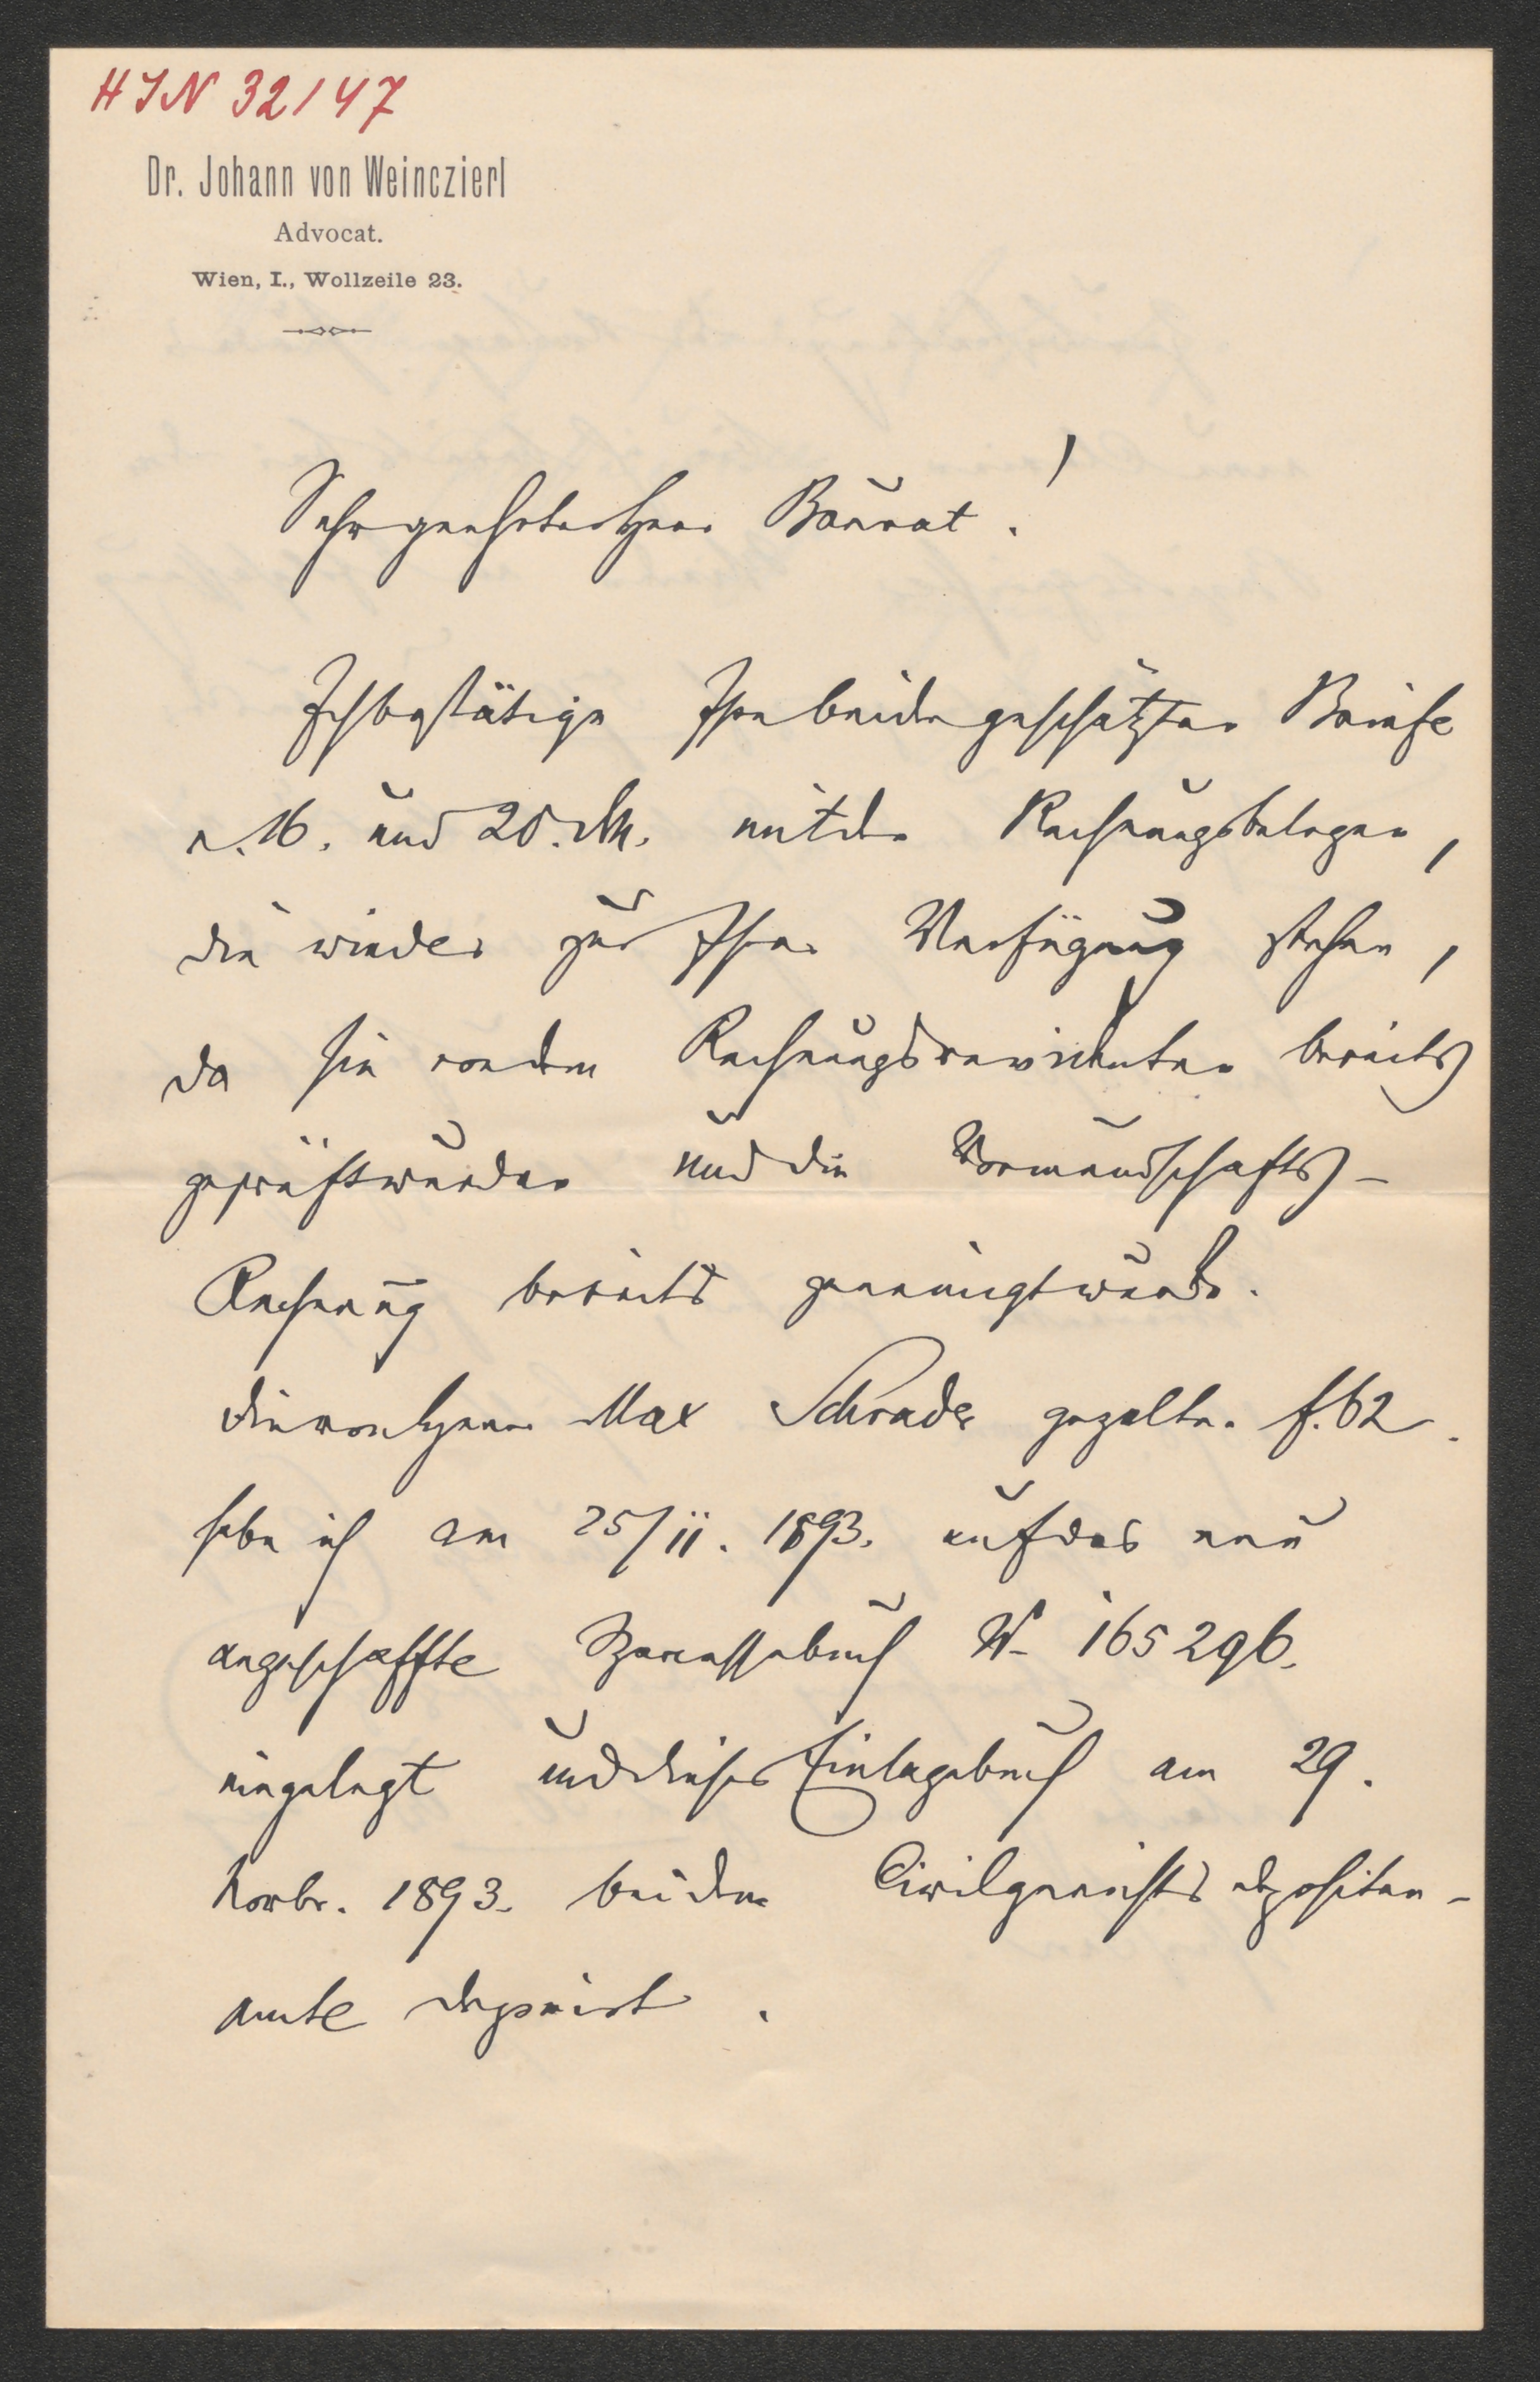 HIN 32147
Dr. Johann von Weinczierl
Advocat.
Wien, I., Wollzeile 23.
Sehr geehrter Herr Baurat!
Ich bestätige Ihre beiden geschätzten Briefe
v. 16. und 20. d.M. mit den Rechnungsbelegen,
die wieder zur Ihrer Verfügung stehen,
da sie von dem Rechnungsrevidenten bereits
geprüft wurden und die Vormundschafts-
Rechnung bereits genemigt wurde.
Die von Herrn Max Schrader gezalten f. 62
habe ich am 25/11. 1893. auf das neu
angeschaffte Sparcassebuch No 165296.
eingelegt und dieses Einlagebuch am 29.
Novbr. 1893. bei dem Civilgerichtsdepositen-
amte deponirt.